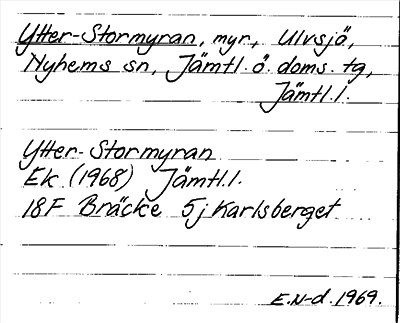 Ytter-Stormyran, myr, Ulvsjö,
Nyhems sn, Jämtl. ö. doms. tg,
Jämtl. l.
Ytter-Stormyran
Ek (1968) Jämtl. l.
18F Bräcke 5j Karlsberget
E.N-d. 1969.